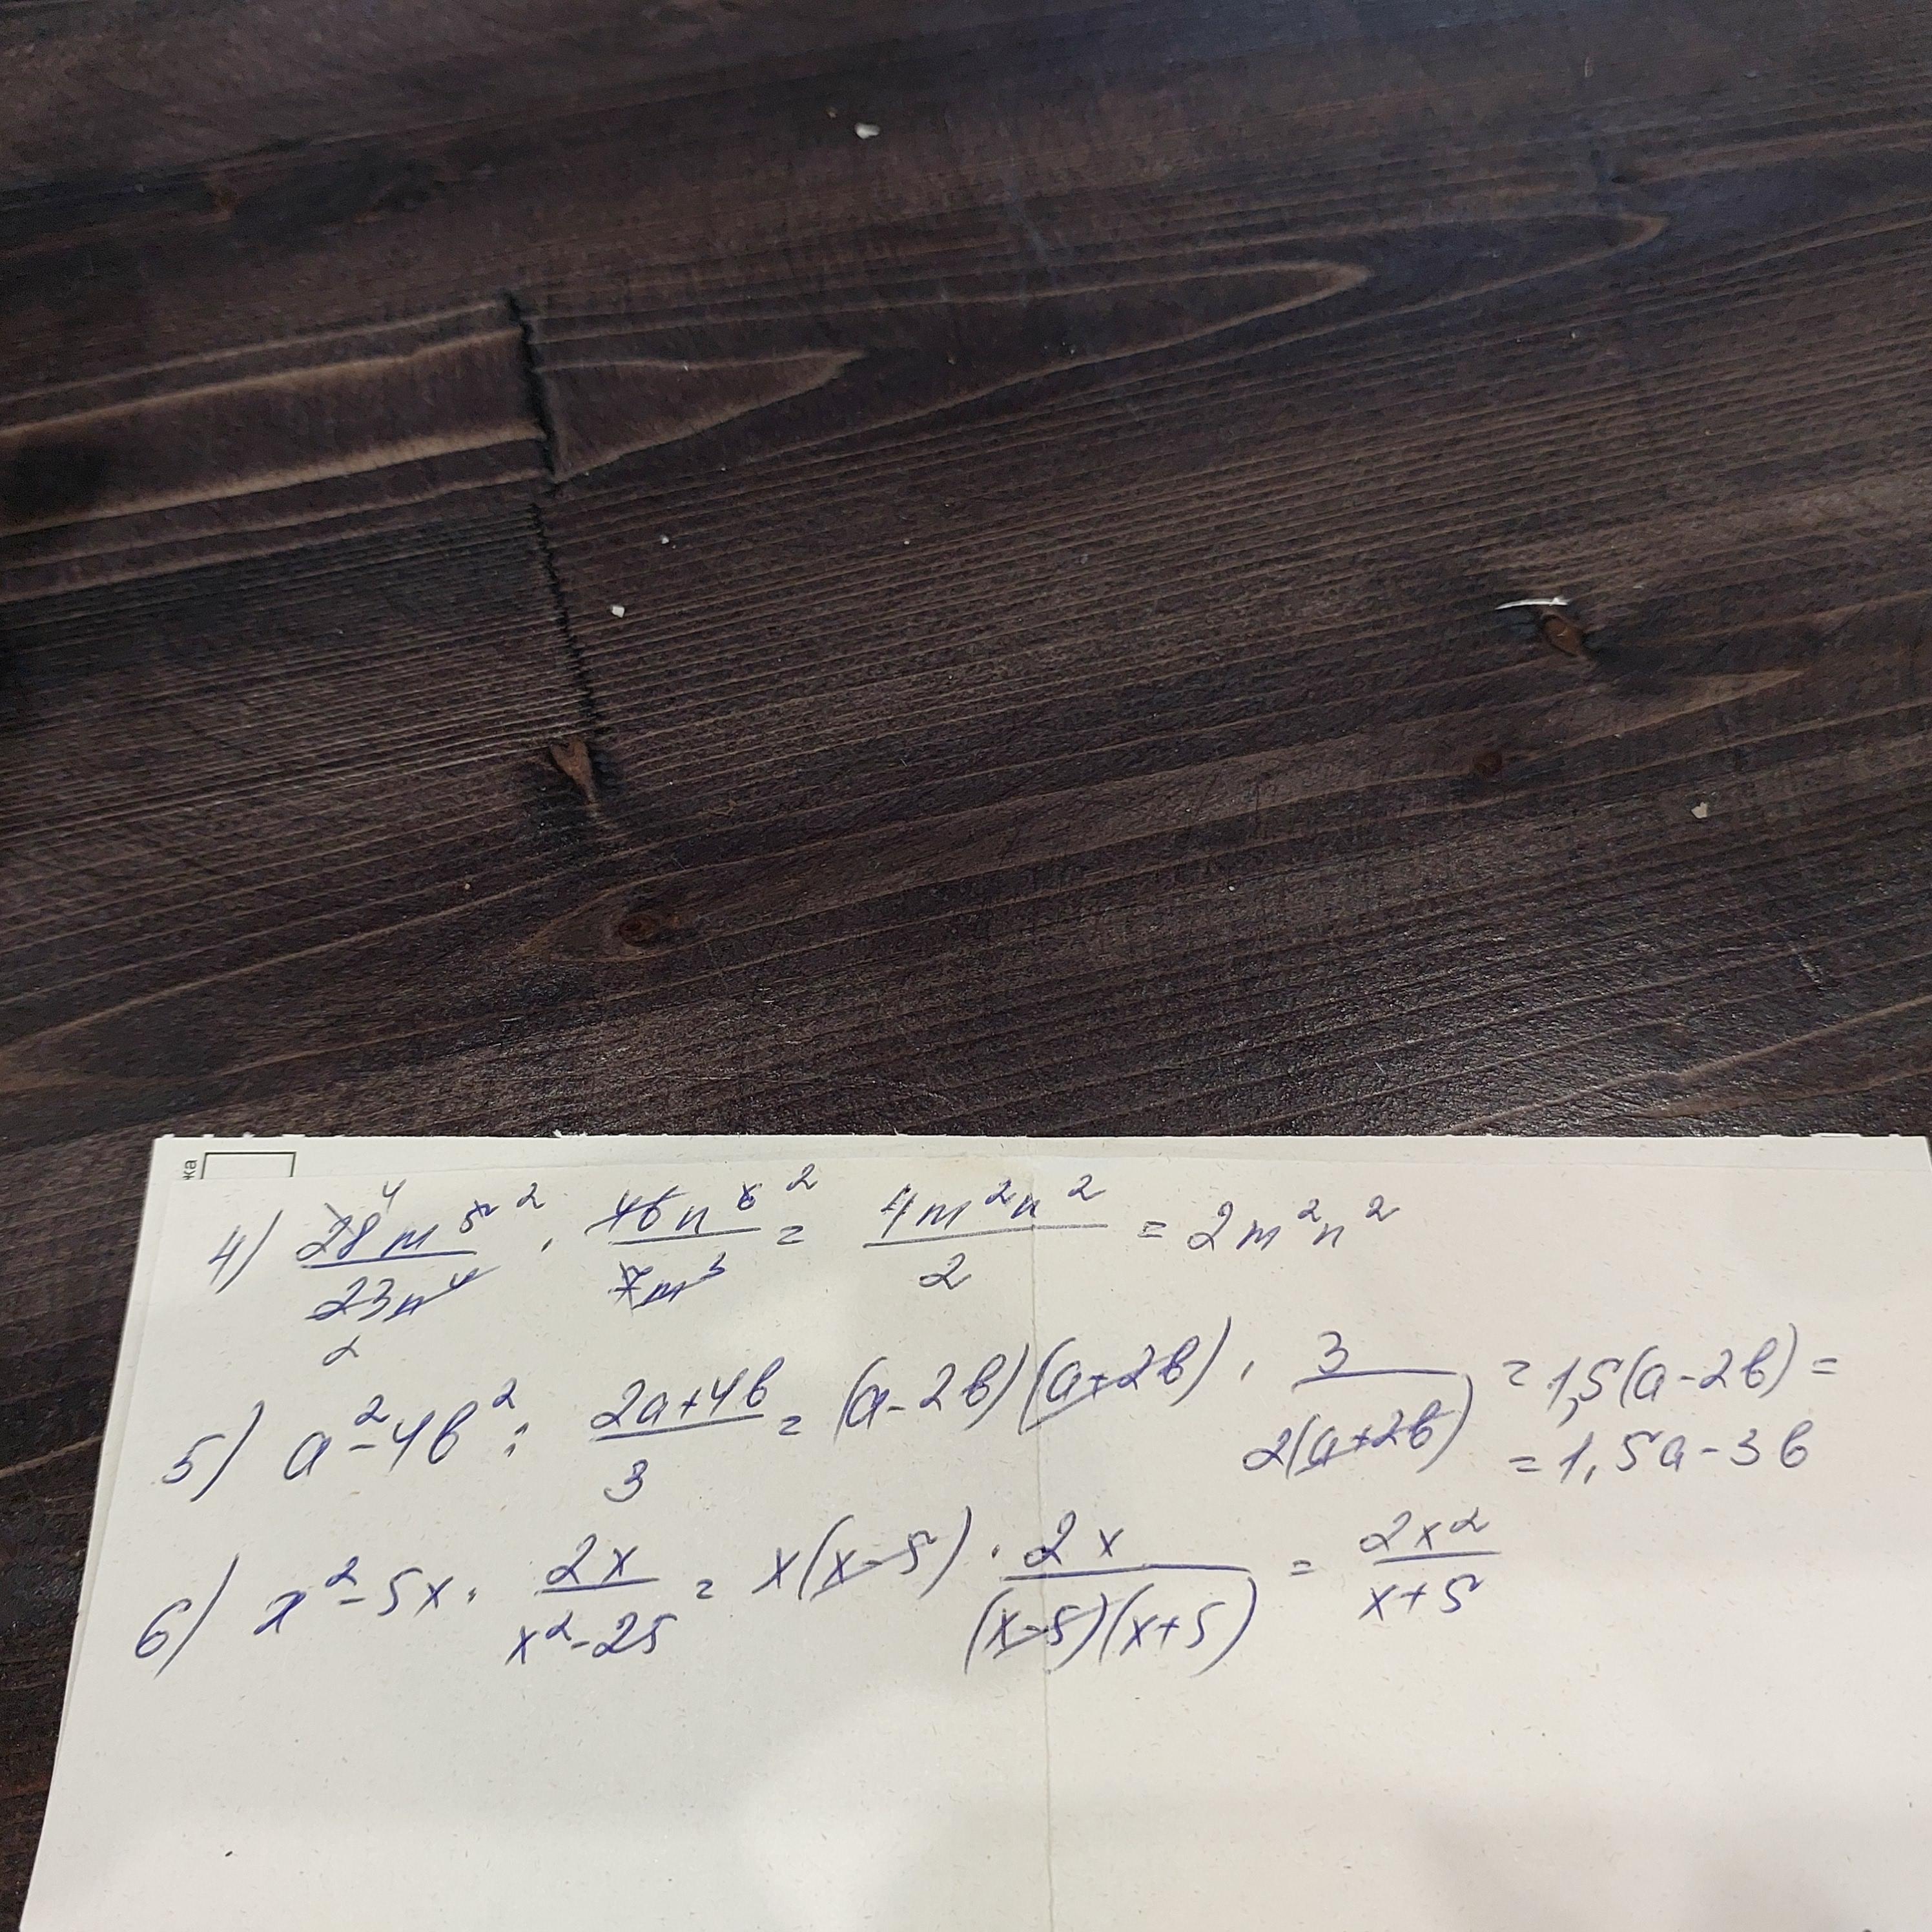 жа
4) 28m⁵ ⁴ ² / 23n⁴ 2 · 46n⁶ ² / 7m³ = 4m²n² / 2 = 2m²n²
5) a² - 4b² : (2a+4b) / 3 = (a-2b)(a+2b) · 3 / 2(a+2b) = 1,5(a-2b) =
= 1,5a-3b
6) x² - 5x · 2x / (x²-25) = x(x-5) · 2x / (x-5)(x+5) = 2x² / (x+5)